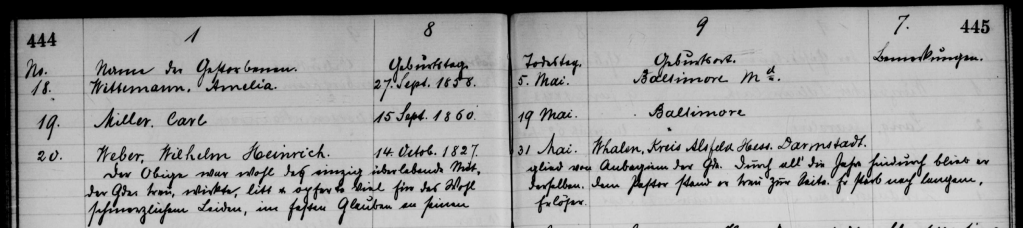 444 1 8 9 7. 445
No. Name des Gestorbenen. Geburtstag. Todestag. Geburtsort. Bemerkungen.
18. Wittemann, Amelia. 27 Sept. 1858. 5. Mai. Baltimore Md.
19. Miller. Carl 15 Sept. 1860. 19 Mai. Baltimore
20. Weber, Wilhelm Heinrich. 14. Octob. 1827. 31 Mai. Whalen, Kreis Alsfeld Hess. Darmstadt.
Der Obige war wohl das einzig überlebende Mit- glied von Anbeginn der Gde. Durch all' die Jahre hindurch blieb er
der Gde treu, wirkte, litt & opferte viel für das Wohl derselben. Dem Pastor stand er treu zur Seite. Er starb nach langem,
schmerzlichem Leiden, im festen Glauben an seinen Erlöser.